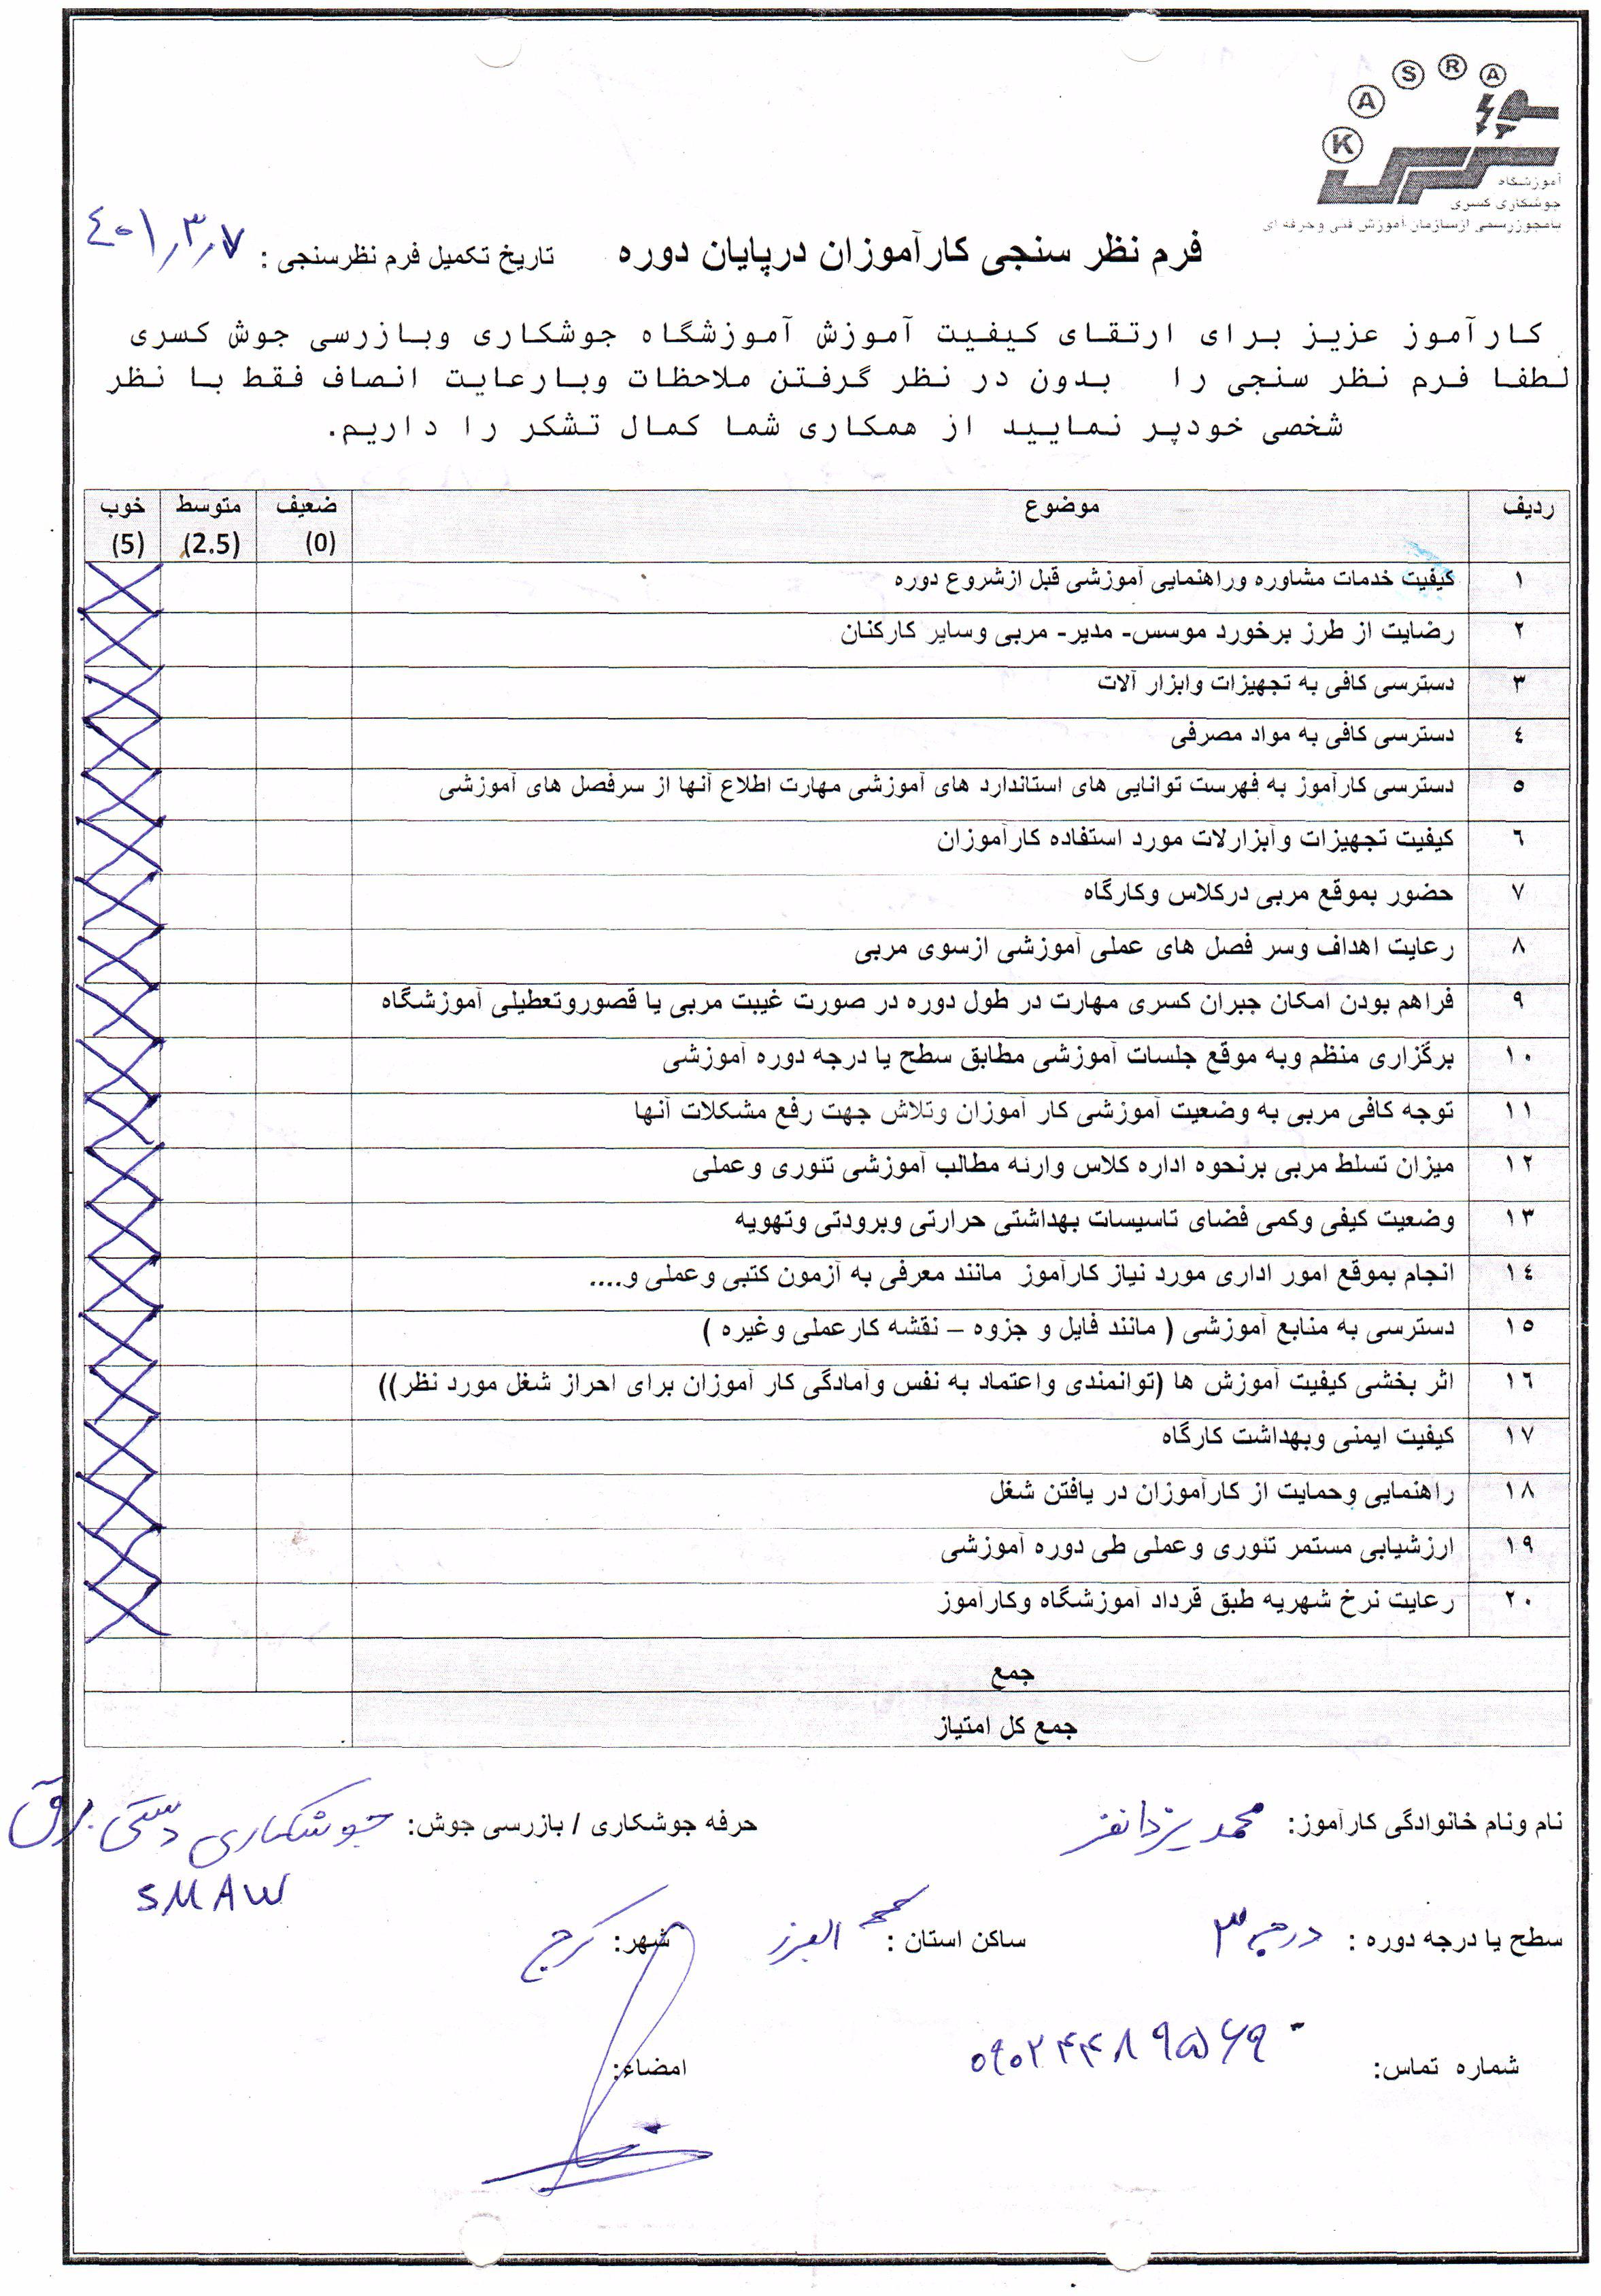 K A S R A
آموزشگاه
جوشکاری کسری
بامجوزرسمی ازسازمان آموزش فنی وحرفه ای
فرم نظر سنجی کارآموزان درپایان دوره تاریخ تکمیل فرم نظرسنجی : ٤٠١,٣,٧
کارآموز عزیز برای ارتقای کیفیت آموزش آموزشگاه جوشکاری وبازرسی جوش کسری
لطفا فرم نظر سنجی را بدون در نظر گرفتن ملاحظات وبارعایت انصاف فقط با نظر
شخصی خودپر نمایید از همکاری شما کمال تشکر را داریم.
ردیف موضوع ضعیف (0) متوسط (2.5) خوب (5)
١ کیفیت خدمات مشاوره وراهنمایی آموزشی قبل ازشروع دوره
٢ رضایت از طرز برخورد موسس- مدیر- مربی وسایر کارکنان
٣ دسترسی کافی به تجهیزات وابزار آلات
٤ دسترسی کافی به مواد مصرفی
٥ دسترسی کارآموز به فهرست توانایی های استاندارد های آموزشی مهارت اطلاع آنها از سرفصل های آموزشی
٦ کیفیت تجهیزات وآبزارلات مورد استفاده کارآموزان
٧ حضور بموقع مربی درکلاس وکارگاه
٨ رعایت اهداف وسر فصل های عملی آموزشی ازسوی مربی
٩ فراهم بودن امکان جبران کسری مهارت در طول دوره در صورت غیبت مربی یا قصوروتعطیلی آموزشگاه
١٠ برگزاری منظم وبه موقع جلسات آموزشی مطابق سطح یا درجه دوره آموزشی
١١ توجه کافی مربی به وضعیت آموزشی کار آموزان وتلاش جهت رفع مشکلات آنها
١٢ میزان تسلط مربی برنحوه اداره کلاس وارئه مطالب آموزشی تئوری وعملی
١٣ وضعیت کیفی وکمی فضای تاسیسات بهداشتی حرارتی وبرودتی وتهویه
١٤ انجام بموقع امور اداری مورد نیاز کارآموز مانند معرفی به آزمون کتبی وعملی و....
١٥ دسترسی به منابع آموزشی ( مانند فایل و جزوه – نقشه کارعملی وغیره )
١٦ اثر بخشی کیفیت آموزش ها (توانمندی واعتماد به نفس وآمادگی کار آموزان برای احراز شغل مورد نظر))
١٧ کیفیت ایمنی وبهداشت کارگاه
١٨ راهنمایی وحمایت از کارآموزان در یافتن شغل
١٩ ارزشیابی مستمر تئوری وعملی طی دوره آموزشی
٢٠ رعایت نرخ شهریه طبق قرداد آموزشگاه وکارآموز
جمع
جمع کل امتیاز
نام ونام خانوادگی کارآموز: محمد یزدانفر حرفه جوشکاری / بازرسی جوش: جوشکاری دستی برق
SMAW
سطح یا درجه دوره : درجه ۳ ساکن استان : البرز شهر: کرج
شماره تماس: ۰۹۰۲۴۴۸۹۵۶۹۰ امضاء: